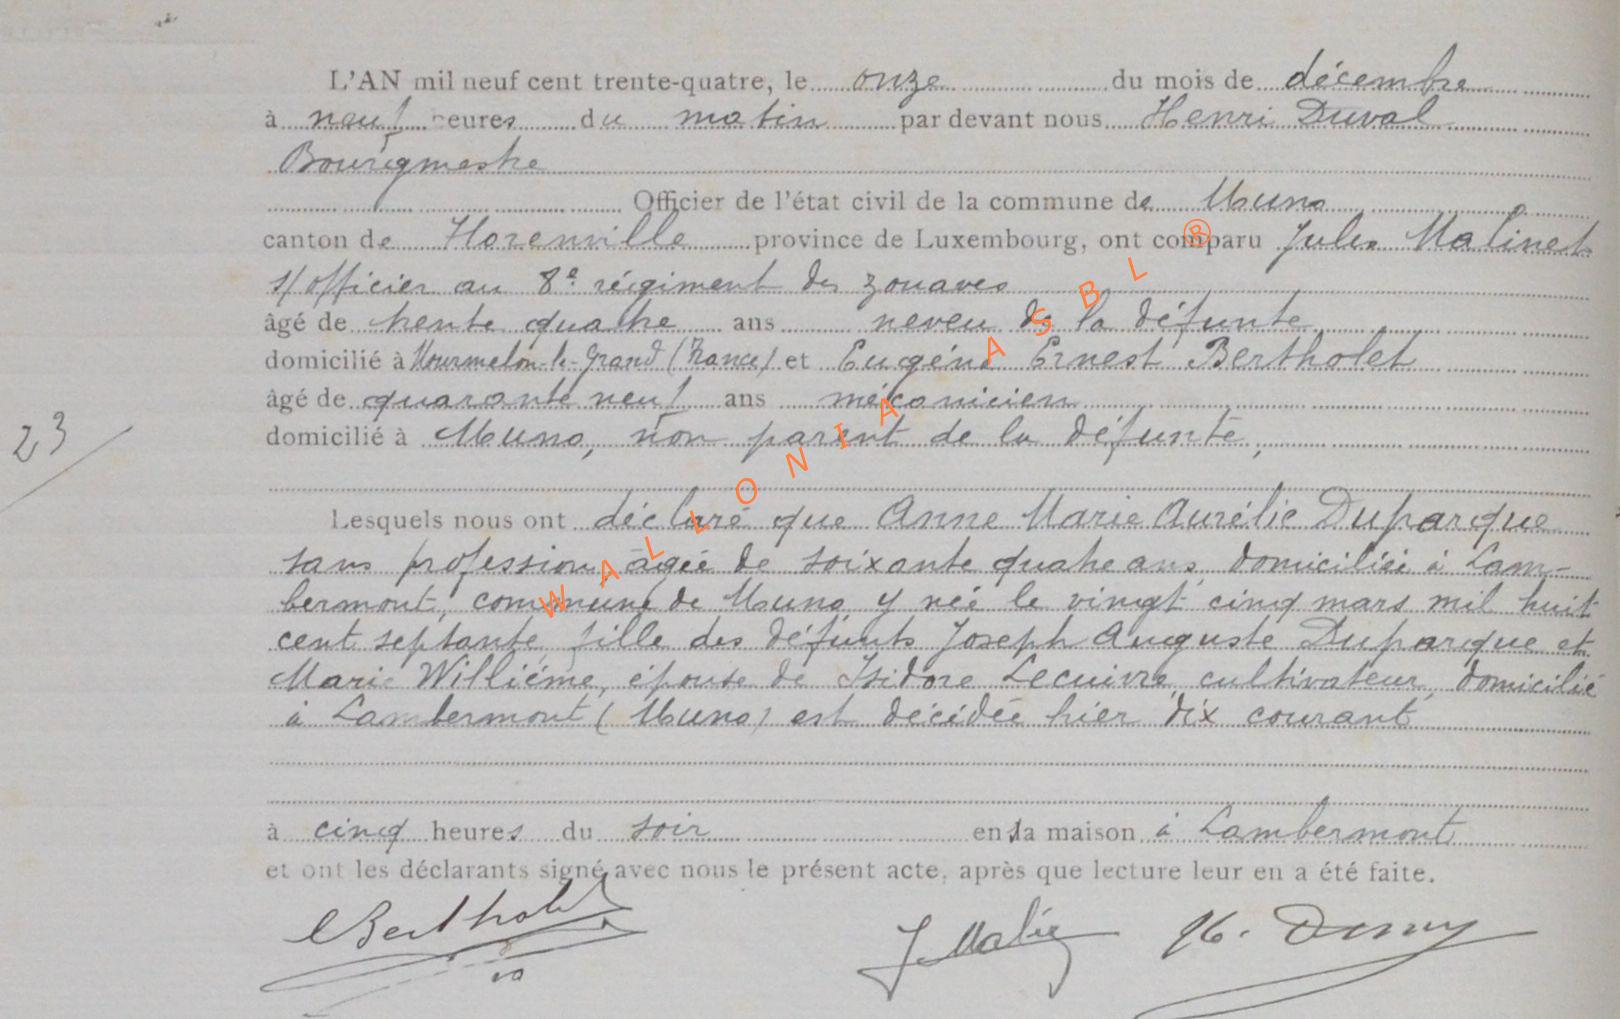 L'AN mil neuf cent trente-quatre, le onze du mois de décembre
à neuf heures du matin par devant nous Henri Duval
Bourgmestre
Officier de l'état civil de la commune de Muno
canton de Florenville province de Luxembourg, ont comparu Jules Malinet
s/officier au 8e régiment de zouaves
âgé de trente quatre ans neveu de la défunte,
domicilié à Mourmelon-le-Grand (France) et Eugène Ernest Bertholet
âgé de quarante neuf ans mécanicien
23 domicilié à Muno, non parent de la défunte,
Lesquels nous ont déclaré que Anne Marie Aurélie Duparque
sans profession, âgée de soixante quatre ans, domiciliée à Lam-
bermont, commune de Muno y née le vingt cinq mars mil huit
cent septante, fille des défunts Joseph Auguste Duparque et
Marie Willième, épouse de Isidore Lecuivre, cultivateur, domicilié
à Lambermont (Muno) est décédée hier dix courant
à cinq heures du soir en sa maison à Lambermont
et ont les déclarants signé avec nous le présent acte, après que lecture leur en a été faite.
EBertholet J Malinet H.
WALLONIA ASBL ®